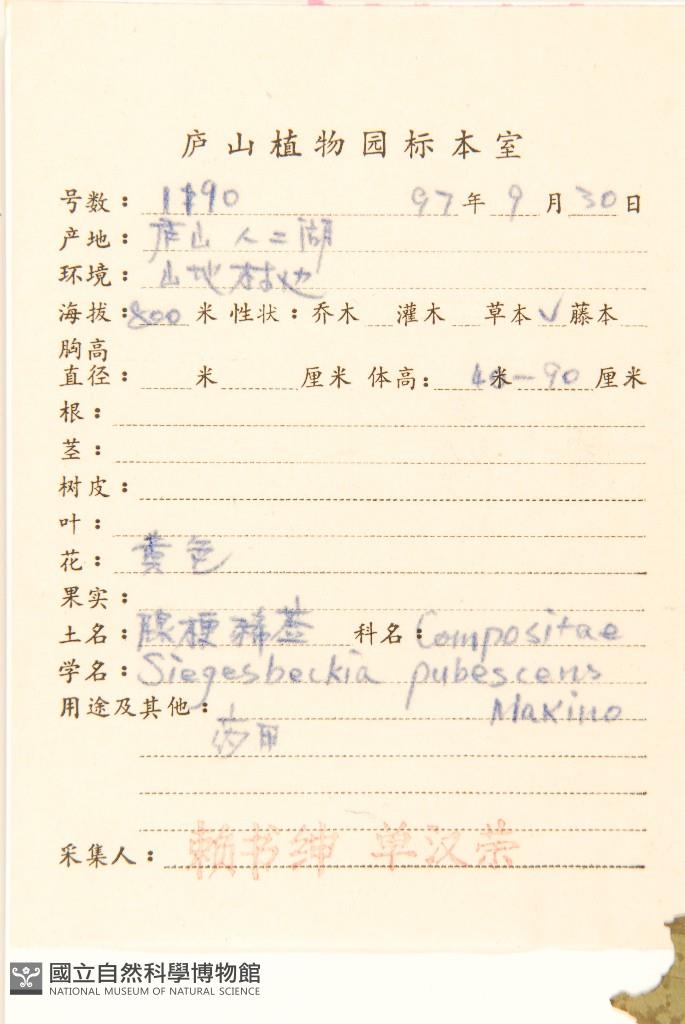 庐山植物园标本室
号数： 1190 97年9月30日
产地： 庐山 人工湖
环境： 山地林边
海拔：800米 性状：乔木 灌木 草本√ 藤本
胸高
直径： 米 厘米 体高： 米 40—90 厘米
根：
茎：
树皮：
叶：
花： 黄色
果实：
土名：腺梗稀莶 科名：Compositae
学名：Siegesbeckia pubescens
用途及其他： Makino
药用
采集人： 赖书绅 单汉荣
國立自然科學博物館
NATIONAL MUSEUM OF NATURAL SCIENCE